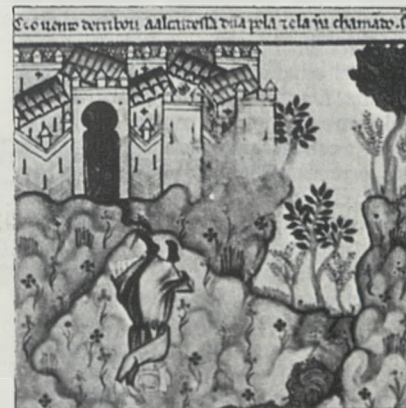 Como o uento derribou aalcaidessa dũa pena τ ela chamado.